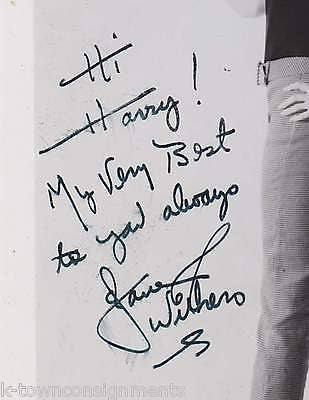 Hi
Harry!
My Very Best
to you always
Jane
Withers
k-townconsignments